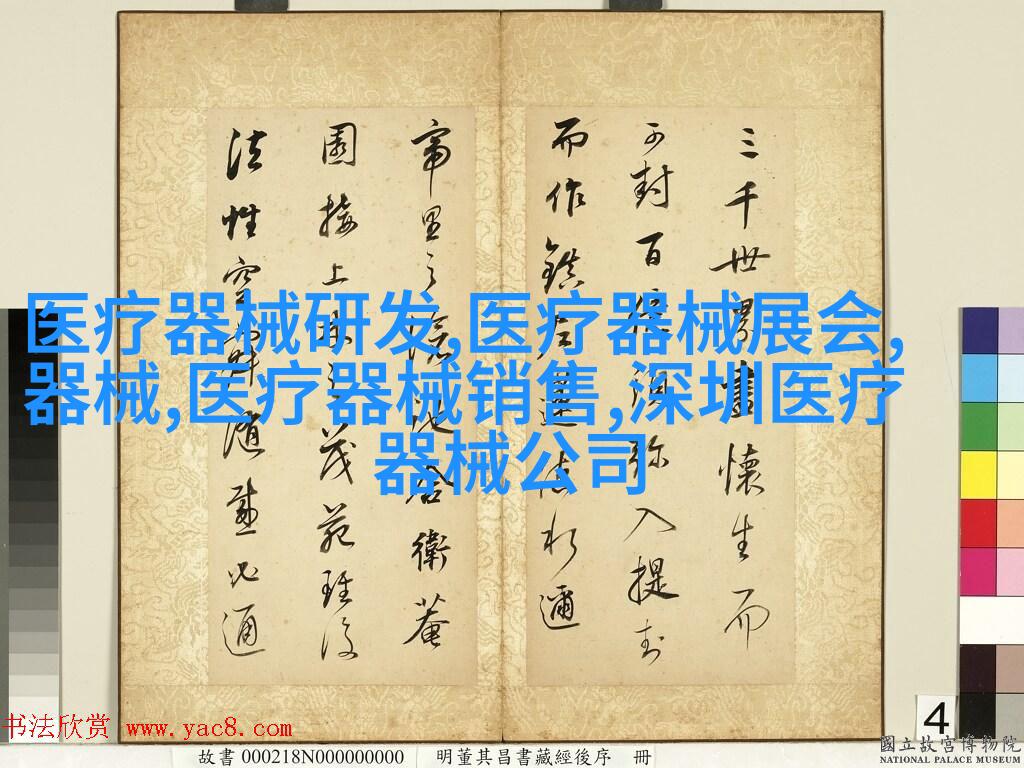 医疗器械研发,医疗器械展会,
器械,医疗器械销售,深圳医疗
器械公司
三千世界盡懷生而
可封百億須弥入提封
而作鎮
里之衛菴
園接上林之茂苑
法性空隨感必通
4
书法欣赏 www.yac8.com
故書 000218N000000000 明董其昌書藏經後序 冊
國立故宮博物院
NATIONAL PALACE MUSEUM